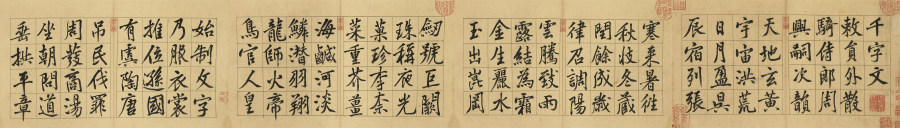 千字文
敕員外散
騎侍郎周
興嗣次韻
天地玄黃
宇宙洪荒
日月盈昃
辰宿列張
寒来暑往
秋收冬藏
閏餘成歲
律召調陽
雲騰致雨
露結為霜
金生麗水
玉出崑岡
劒號巨闕
珠稱夜光
菓珍李柰
菜重芥薑
海鹹河淡
鱗潛羽翔
龍師火帝
鳥官人皇
始制文字
乃服衣裳
推位遜國
有虞陶唐
吊民伐罪
周發商湯
坐朝問道
垂拱平章